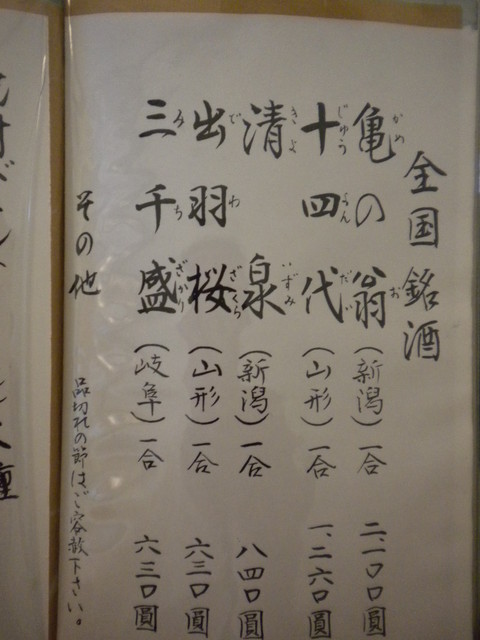 全国銘酒
亀の翁（新潟）一合 二、一〇〇圓
かめ お
十四代（山形）一合 一、二六〇圓
じゅうよんだい
清泉（新潟）一合 八四〇圓
きよ いずみ
出羽桜（山形）一合 六三〇圓
でわざくら
三千盛（岐阜）一合 六三〇圓
みちざかり
その他
品切れの節はご容赦下さい。